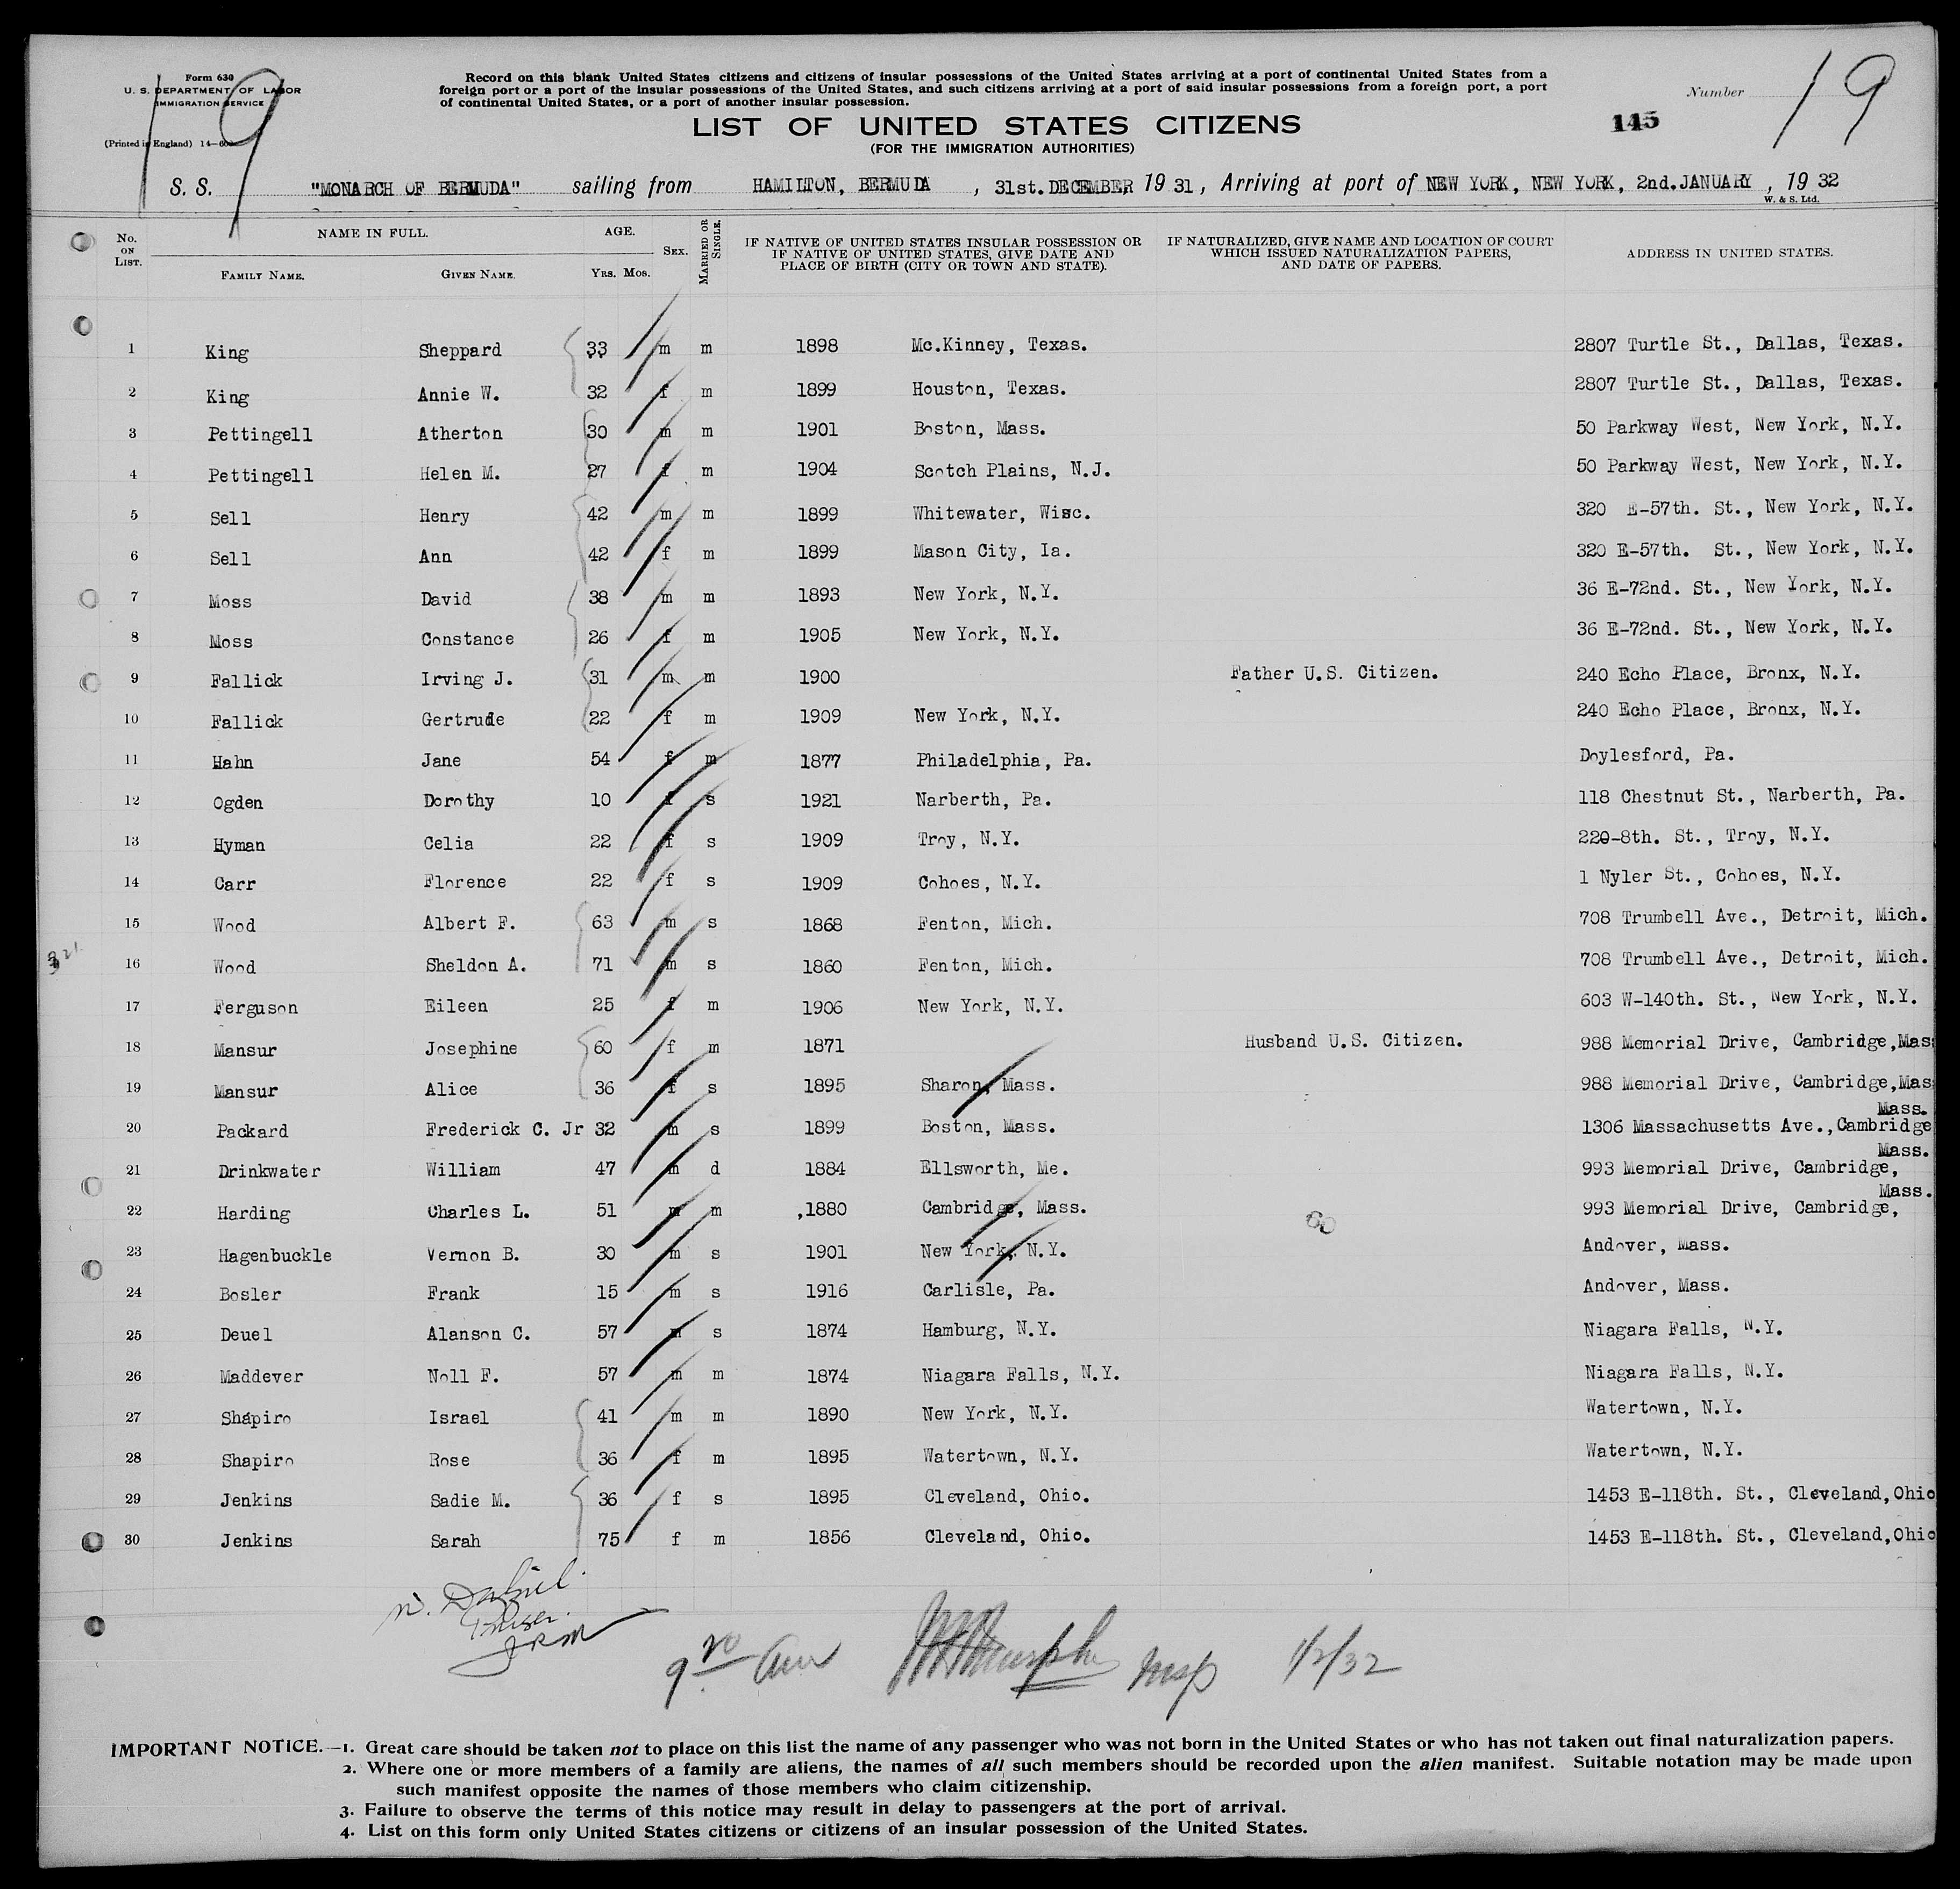 Form 630
U. S. DEPARTMENT OF LABOR
IMMIGRATION SERVICE
(Printed in England) 14-
19
Record on this blank United States citizens and citizens of insular possessions of the United States arriving at a port of continental United States from a
foreign port or a port of the insular possessions of the United States, and such citizens arriving at a port of said insular possessions from a foreign port, a port
of continental United States, or a port of another insular possession.
Number 19
145
LIST OF UNITED STATES CITIZENS
(FOR THE IMMIGRATION AUTHORITIES)
S. S. "MONARCH OF BERMUDA" sailing from HAMILTON, BERMUDA , 31st.DECEMBER 19 31 , Arriving at port of NEW YORK, NEW YORK, 2nd.JANUARY , 19 32
W. & S. Ltd.
No. ON LIST. NAME IN FULL. FAMILY NAME. GIVEN NAME. AGE. YRS. MOS. SEX. MARRIED OR SINGLE. IF NATIVE OF UNITED STATES INSULAR POSSESSION OR IF NATIVE OF UNITED STATES, GIVE DATE AND PLACE OF BIRTH (CITY OR TOWN AND STATE). IF NATURALIZED, GIVE NAME AND LOCATION OF COURT WHICH ISSUED NATURALIZATION PAPERS, AND DATE OF PAPERS. ADDRESS IN UNITED STATES.
1 King Sheppard 33 m m 1898 Mc.Kinney, Texas. 2807 Turtle St., Dallas, Texas.
2 King Annie W. 32 f m 1899 Houston, Texas. 2807 Turtle St., Dallas, Texas.
3 Pettingell Atherton 30 m m 1901 Boston, Mass. 50 Parkway West, New York, N.Y.
4 Pettingell Helen M. 27 f m 1904 Scotch Plains, N.J. 50 Parkway West, New York, N.Y.
5 Sell Henry 42 m m 1899 Whitewater, Wisc. 320 E-57th. St., New York, N.Y.
6 Sell Ann 42 f m 1899 Mason City, Ia. 320 E-57th. St., New York, N.Y.
7 Moss David 38 m m 1893 New York, N.Y. 36 E-72nd. St., New York, N.Y.
8 Moss Constance 26 f m 1905 New York, N.Y. 36 E-72nd. St., New York, N.Y.
9 Fallick Irving J. 31 m m 1900 Father U.S. Citizen. 240 Echo Place, Bronx, N.Y.
10 Fallick Gertrude 22 f m 1909 New York, N.Y. 240 Echo Place, Bronx, N.Y.
11 Hahn Jane 54 f m 1877 Philadelphia, Pa. Doylesford, Pa.
12 Ogden Dorothy 10 f s 1921 Narberth, Pa. 118 Chestnut St., Narberth, Pa.
13 Hyman Celia 22 f s 1909 Troy, N.Y. 220-8th. St., Troy, N.Y.
14 Carr Florence 22 f s 1909 Cohoes, N.Y. 1 Nyler St., Cohoes, N.Y.
15 Wood Albert F. 63 m s 1868 Fenton, Mich. 708 Trumbell Ave., Detroit, Mich.
16 Wood Sheldon A. 71 m s 1860 Fenton, Mich. 708 Trumbell Ave., Detroit, Mich.
17 Ferguson Eileen 25 f m 1906 New York, N.Y. 603 W-140th. St., New York, N.Y.
18 Mansur Josephine 60 f m 1871 Husband U.S. Citizen. 988 Memorial Drive, Cambridge,Mas
19 Mansur Alice 36 f s 1895 Sharon, Mass. 988 Memorial Drive, Cambridge,Mas
Mass.
20 Packard Frederick C. Jr 32 m s 1899 Boston, Mass. 1306 Massachusetts Ave.,Cambridge
Mass.
21 Drinkwater William 47 m d 1884 Ellsworth, Me. 993 Memorial Drive, Cambridge,
Mass.
22 Harding Charles L. 51 m m ,1880 Cambridge, Mass. 993 Memorial Drive, Cambridge,
60
23 Hagenbuckle Vernon B. 30 m s 1901 New York, N.Y. Andover, Mass.
24 Bosler Frank 15 m s 1916 Carlisle, Pa. Andover, Mass.
25 Deuel Alanson C. 57 m s 1874 Hamburg, N.Y. Niagara Falls, N.Y.
26 Maddever Noll F. 57 m m 1874 Niagara Falls, N.Y. Niagara Falls, N.Y.
27 Shapiro Israel 41 m m 1890 New York, N.Y. Watertown, N.Y.
28 Shapiro Rose 36 f m 1895 Watertown, N.Y. Watertown, N.Y.
29 Jenkins Sadie M. 36 f s 1895 Cleveland, Ohio. 1453 E-118th. St., Cleveland,Ohio
30 Jenkins Sarah 75 f m 1856 Cleveland, Ohio. 1453 E-118th. St., Cleveland,Ohio
1/2/32
IMPORTANT NOTICE.—1. Great care should be taken not to place on this list the name of any passenger who was not born in the United States or who has not taken out final naturalization papers.
2. Where one or more members of a family are aliens, the names of all such members should be recorded upon the alien manifest. Suitable notation may be made upon
such manifest opposite the names of those members who claim citizenship.
3. Failure to observe the terms of this notice may result in delay to passengers at the port of arrival.
4. List on this form only United States citizens or citizens of an insular possession of the United States.